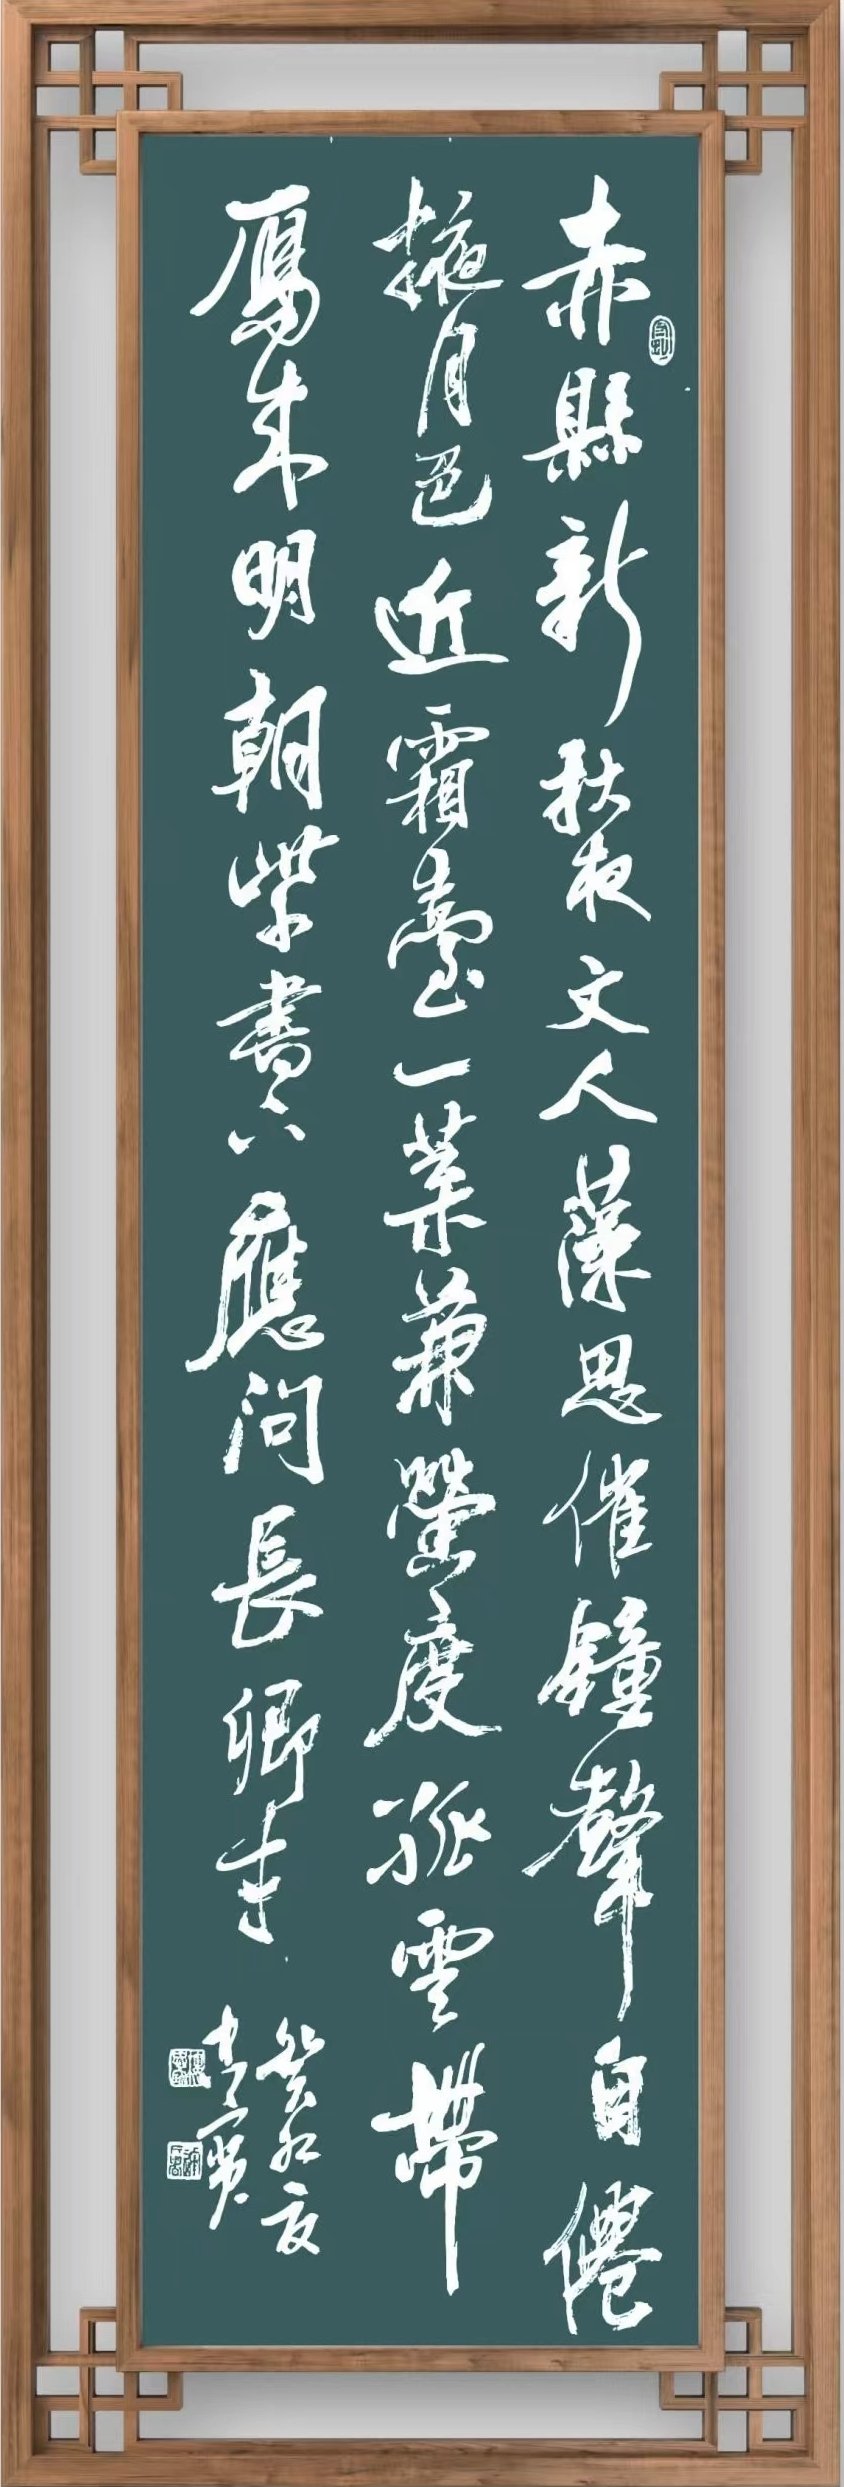 赤縣新秋夜文人藻思催鐘聲自僊
掖月色近霜臺一葉兼螢度孤雲帶
鴈来明朝紫書下應問長卿才
癸卯夏